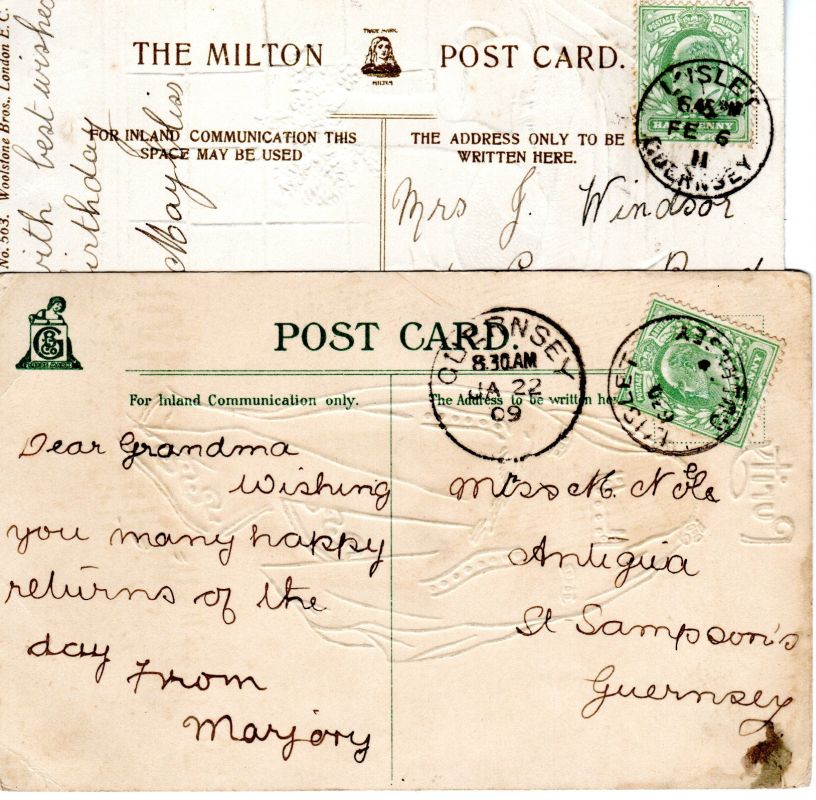 No. 503. Woolstone Bros., London E.C.
with best wishes
birthday
THE MILTON
TRADE MARK
MILTON
POST CARD.
FOR INLAND COMMUNICATION THIS
SPACE MAY BE USED
THE ADDRESS ONLY TO BE
WRITTEN HERE.
POSTAGE & REVENUE
HALFPENNY
L'ISLET
6.45 PM
FE 6
11
GUERNSEY
Mrs J. Windsor
POST CARD.
GUERNSEY
8.30 AM
JA 22
09
L'ISLET
GUERNSEY
For Inland Communication only.
The Address to be written her
Dear Grandma
Wishing
you many happy
returns of the
day
From
Marjory
M. Nole
Antigua
St Sampson's
Guernsey